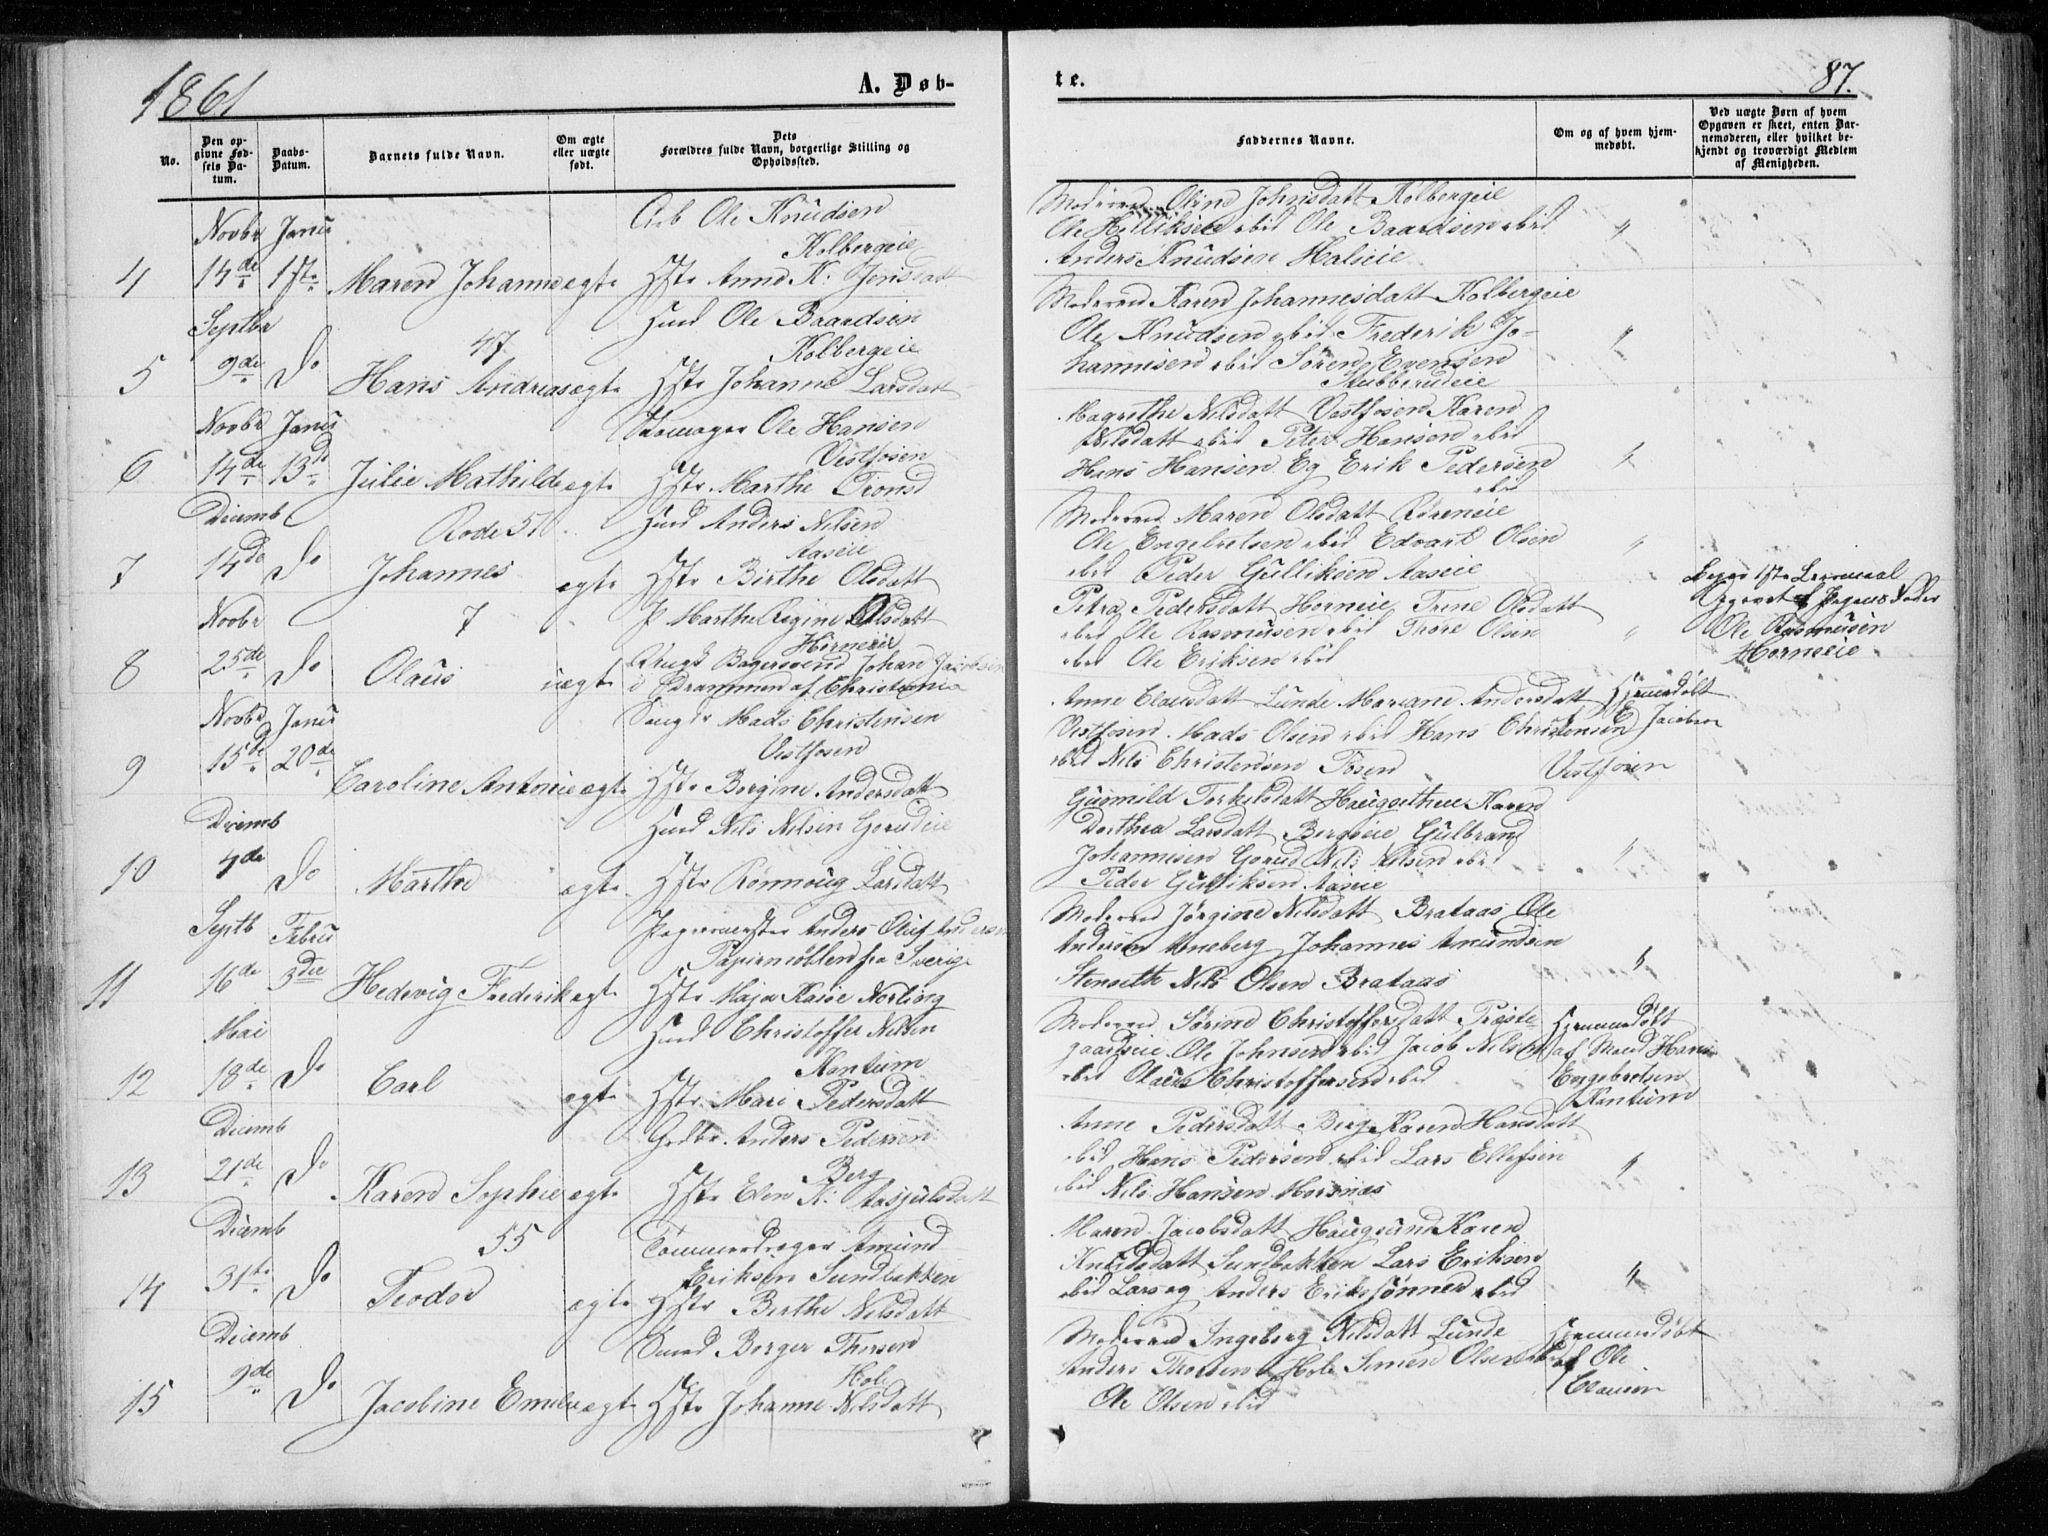 1861
A. Døb-
te.
87.
No.
Den op-
givne Fød-
sels Da-
tum.
Daabs-
Datum.
Barnets fulde Navn.
Om ægte
eller uægte
født.
Dets
Forældres fulde Navn, borgerlige Stilling og
Opholdssted.
Faddernes Navne.
Om og af hvem hjem-
medøbt.
Ved uægte Børn af hvem
Opgaven er skeet, enten Bar-
nemoderen, eller hvilket be-
kjendt og troværdigt Medlem
af Menigheden.
4
Novbr 14de
Janu 1ste
Maren Johanne
ægte
Arb Ole Knudsen
Kolbergeie
Hstr Anne K. Jensdatt
Moderen Oline Johnsdatt Kolbergeie
Ole Hellik­sen ibid Ole Baardsen ibid
Anders Knudsen Halseie
"
5
Septbr 9de
Do
47
Hans Andreas
ægte
Husd Ole Baardsen
Kolbergeie
Hstr Johanne Larsdatt
Moderen Karen Johannesdatt Kolbergeie
Ole Knudsen ibid Frederik Jo-
hannesen ibid Søren Evensen
Stubberudeie
"
6
Novbr 14de
Janu 13de
Julie Mathilde
ægte
Ole Hansen
Vestfosen
Hstr Marthe Tronsd
Magrethe Nilsdatt Vestfosen Karen
Nilsdatt ibid Peter Hansen ibid
Hans Hansen Eg Erik Pedersen
ibid
"
7
Decemb 14de
Do
Rode 51
Johannes
ægte
Husd Anders Nilsen
Aaseie
Hstr Birthe Olsdatt
Moderen Maren Olsdatt
Ole Engebretsen ibid Edvart Olsen
ibid Peder Gulliksen Aaseie
"
8
Novbr 25de
Do
7
Olaus
uægte
P Marthe Regine Olsdatt
Horneeie
Ungk Bagersvend Johan Jacobsen
i Drammen af Christiania
Petra Pedersdatt Horneie, Trine Olsdatt
ibid Ole Rasmusen ibid Thore Olsen
ibid Ole Eriksen ibid
"
Begges 1ste Leiermaal
Opgivet af Pigens Fader
Ole Rasmusen
Horneeie
9
Novbr 15de
Janu 20de
Caroline Antonie
ægte
Mads Christensen
Vestfosen
Hstr Borgine Andersdatt
Anne Clausdatt Lunde Mariane Andersdatt
Vestfosen Mads Olsen ibid Hans Christensen
ibid Nils Christensen Fosen
Hjemmedøbt
E Jacobsen
Vestfosen
10
Decemb 4de
Do
Marthe
ægte
Husd Nils Nilsen Gorudeie
Hstr Rønnoug Larsdatt
Gunnild Torkelsdatt Karen
Dorthea Larsdatt Bergseie Gulbrand
Johannesen Gorud Nils Nilsen ibid
Peder Gulliksen Aaseie
"
11
Septb 16de
Febru 3die
Hedevig Frederik
ægte
Papirmester Anders Oluf Andersen
Papirmøllen fra Sverige
Hstr Maja Kaise Norling
Moderen Jørgine Nilsdatt Brataas Ole
Andersen Arneberg Johannes Amundsen
Stenseth Nils Olsen Brataas
"
12
Mai 18de
Do
Carl
ægte
Husd Christoffer Nilsen
Kantum
Hstr Mari Pedersdatt
Moderen Sørine Christoffersdatt Præste-
gaardseie Ole Johnsen ibid Jacob Nilsen
ibid Olaus Christoffersen ibid
Hjemmedøbt
af Mand Hans
Engebretsen
Kantum
13
Decemb 21de
Do
Karen Sophie
ægte
Gbr. Anders Pedersen
Berg
Hstr Elen K. Aasjulsdatt
Anne Pedersdatt Berg Karen Hansdatt
ibid Hans Pedersen ibid Lars Ellefsen
ibid Nils Hansen Morsnæs
"
14
Decemb 31te
Do
55
Teodor
ægte
Tømmerdrager Amund
Eriksen Sundbakken
Hstr Berthe Nilsdatt
Maren Jacobsdatt Haugsund Karen
Knudsdatt Sundbakken Lars Eriksen
ibid Lars og Anders Erikssønner ibid
"
15
Decemb 9de
Do
Jacobine Emilie
ægte
Smed Borger Thorsen
Hole
Hstr Johanne Nilsdatt
Moderen Ingeborg Nilsdatt Lunde
Anders Thorsen Hole Simen Olsen ibid
Ole Olsen ibid
Hjemmedøbt
af Ole
Clausen